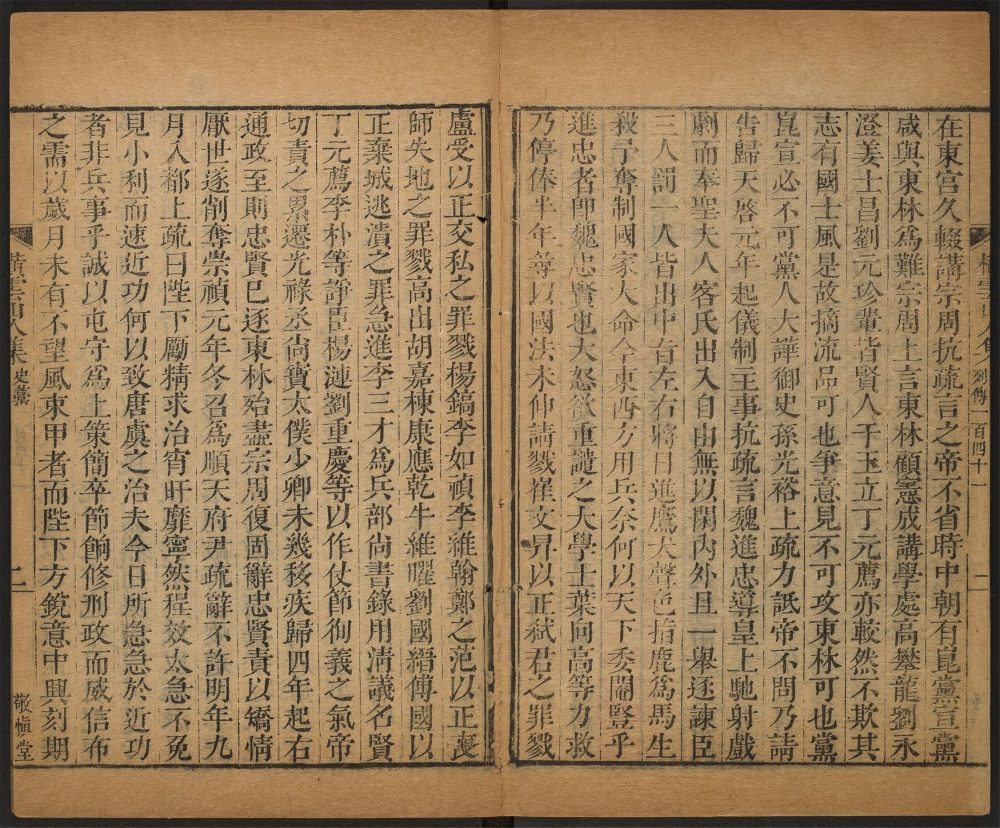 在東宮久輟講宗周抗疏言之帝不省時中朝有崑黨宣黨
咸與東林爲難宗周上言東林顧憲成講學處高攀龍劉永
澄姜士昌劉元珍輩皆賢人于玉立丁元薦亦較然不欺其
志有國士風是故摘流品可也爭意見不可攻東林可也黨
崑宣必不可黨人大譁御史孫光裕上疏力詆帝不問乃請
告歸天啓元年起儀制主事抗疏言魏進忠導皇上馳射戲
劇而奉聖夫人客氏出入自由無以閑內外且一舉逐諫臣
三人罰一人皆出中旨左右將日進鷹犬聲色指鹿爲馬生
殺予奪制國家大命今東西方用兵奈何以天下委閹豎乎
進忠者卽魏忠賢也大怒欲重譴之大學士葉向高等力救
乃停俸半年尋以國法未伸請戮崔文昇以正弑君之罪戮
列傳一百四十一
盧受以正交私之罪戮楊鎬李如禎李維翰鄭之范以正喪
師失地之罪戮高出胡嘉棟康應乾牛維曜劉國縉傅國以
正棄城逃潰之罪急進李三才爲兵部尙書錄用淸議名賢
丁元薦李朴等諍臣楊漣劉重慶等以作仗節徇義之氣帝
切責之累遷光祿丞尙寶太僕少卿未幾移疾歸四年起右
通政至則忠賢已逐東林殆盡宗周復固辭忠賢責以矯情
厭世遂削奪崇禎元年冬召爲順天府尹疏辭不許明年九
月入都上疏曰陛下勵精求治宵旰靡寧然程效太急不免
見小利而速近功何以致唐虞之治夫今日所急急於近功
者非兵事乎誠以屯守爲上策簡卒節餉修刑政而威信布
之需以歲月未有不望風束甲者而陛下方銳意中興刻期
史藳
二
敬愼堂